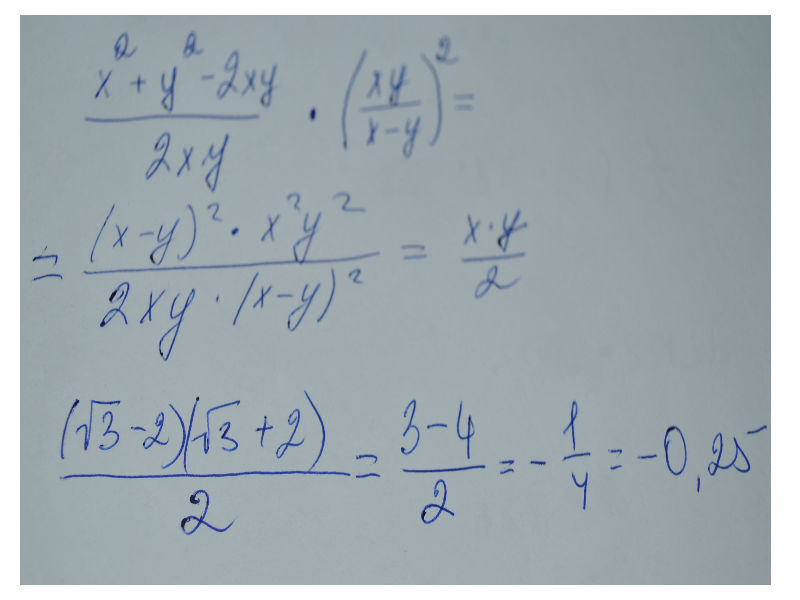 (x² + y² - 2xy)/(2xy) · (xy/(x-y))² =
= ((x-y)² · x²y²)/(2xy · (x-y)²) = (x·y)/2
((√3-2)(√3+2))/2 = (3-4)/2 = -1/4 = -0,25